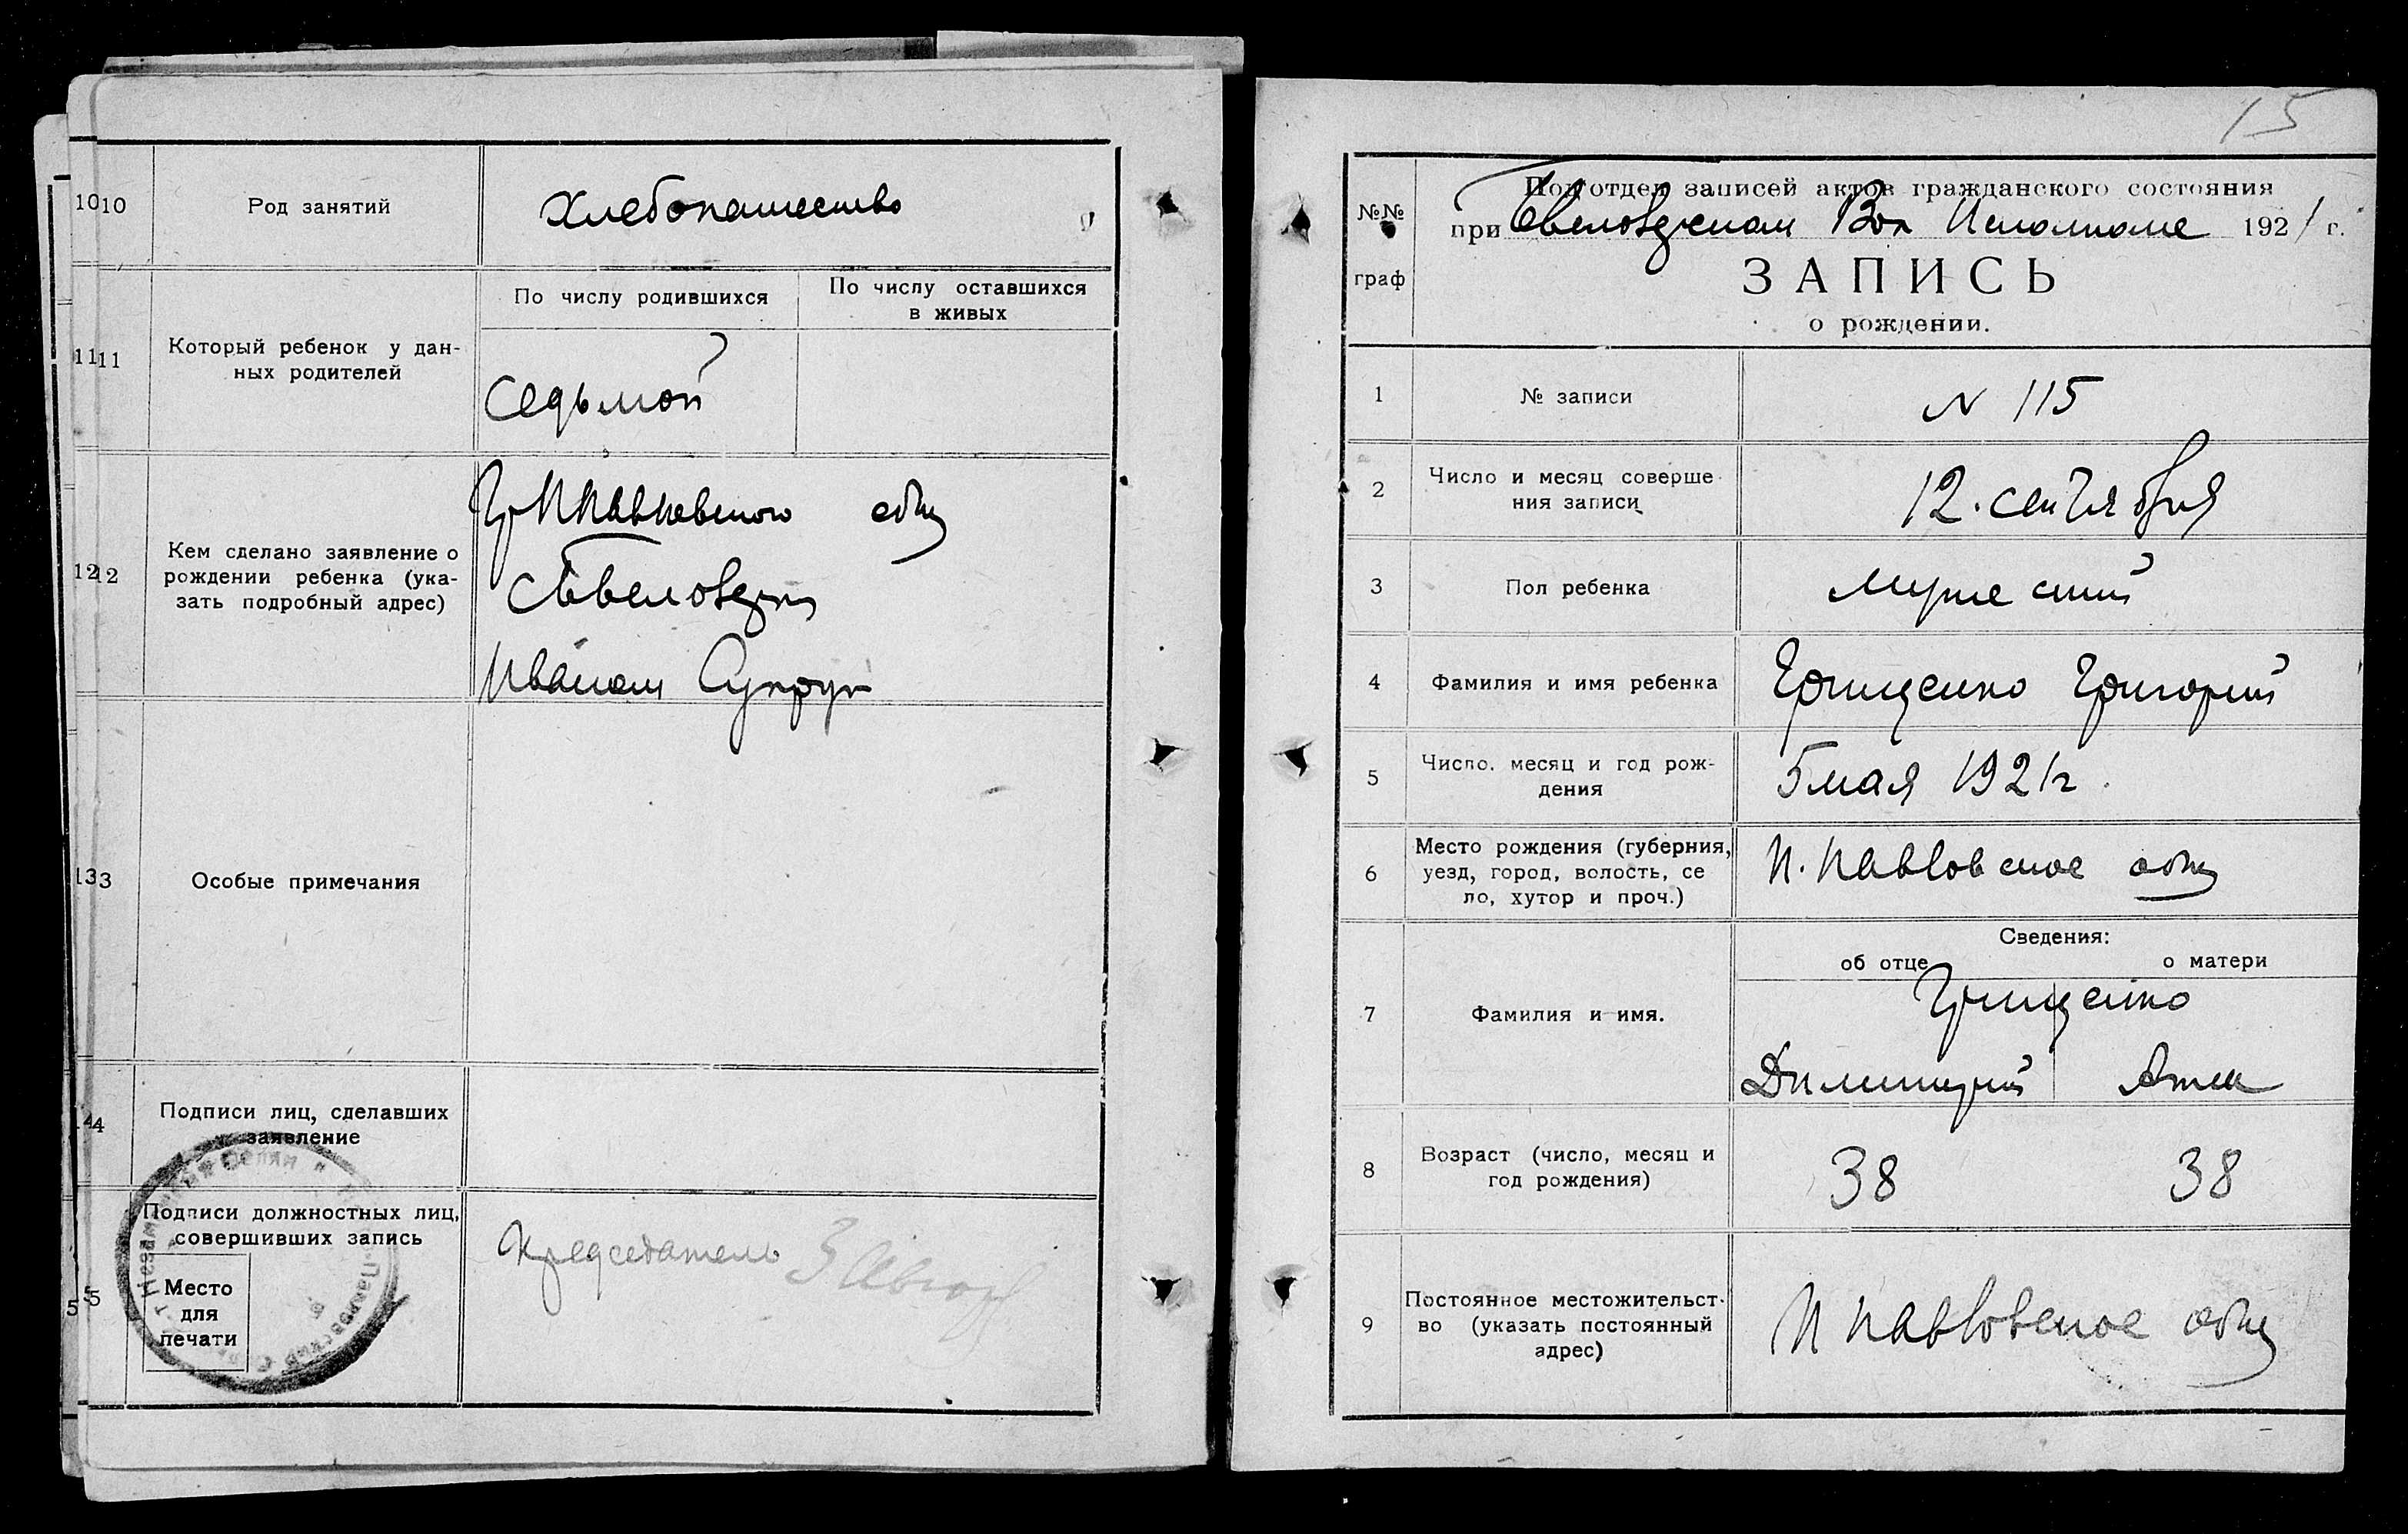 10 10
Род занятий
Хлебопашество
По числу родившихся
По числу оставшихся
в живых
11 11
Который ребенок у дан-
ных родителей
седьмой
12 12
Кем сделано заявление о
рождении ребенка (ука-
зать подробный адрес)
Гр ППавловского общ
Иваном Супрун
13 3
Особые примечания
14 4
Подписи лиц, сделавших
заявление
5 5 5
Подписи должностных лиц,
совершивших запись
Место
для
печати
Председатель
15
№№
граф
Подотдел записей актов гражданского состояния
при Вол Исполкоме 1921 г.
ЗАПИСЬ
о рождении.
1
№ записи
N 115
2
Число и месяц соверше
ния записи
12. сентября
3
Пол ребенка
мужеский
4
Фамилия и имя ребенка
Грищенко Григорий
5
Число. месяц и год рож-
дения
5 мая 1921 г.
6
Место рождения (губерния,
уезд, город, волость, се
ло, хутор и проч.)
П. Павловское общ
Сведения:
об отце
о матери
7
Фамилия и имя.
Грищенко
Димитрий
Анна
8
Возраст (число, месяц и
год рождения)
38
38
9
Постоянное местожительст-
во (указать постоянный
адрес)
П Павловское общ